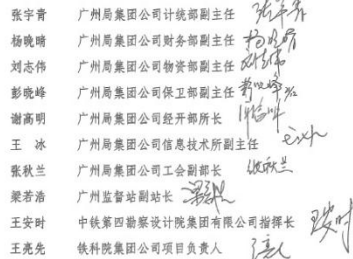 张宇青 广州局集团公司计统部副主任 张宇青
杨晚晴 广州局集团公司财务部副主任 杨晚晴
刘志伟 广州局集团公司物资部副主任 刘志伟
彭晓峰 广州局集团公司保卫部副主任 彭晓峰
谢高明 广州局集团公司经开部所长
王 冰 广州局集团公司信息技术所副主任
张秋兰 广州局集团公司工会副部长 张秋兰
梁若浩 广州监督站副站长 梁若浩
王安时 中铁第四勘察设计院集团有限公司指挥长 王安时
王亮先 铁科院集团公司项目负责人